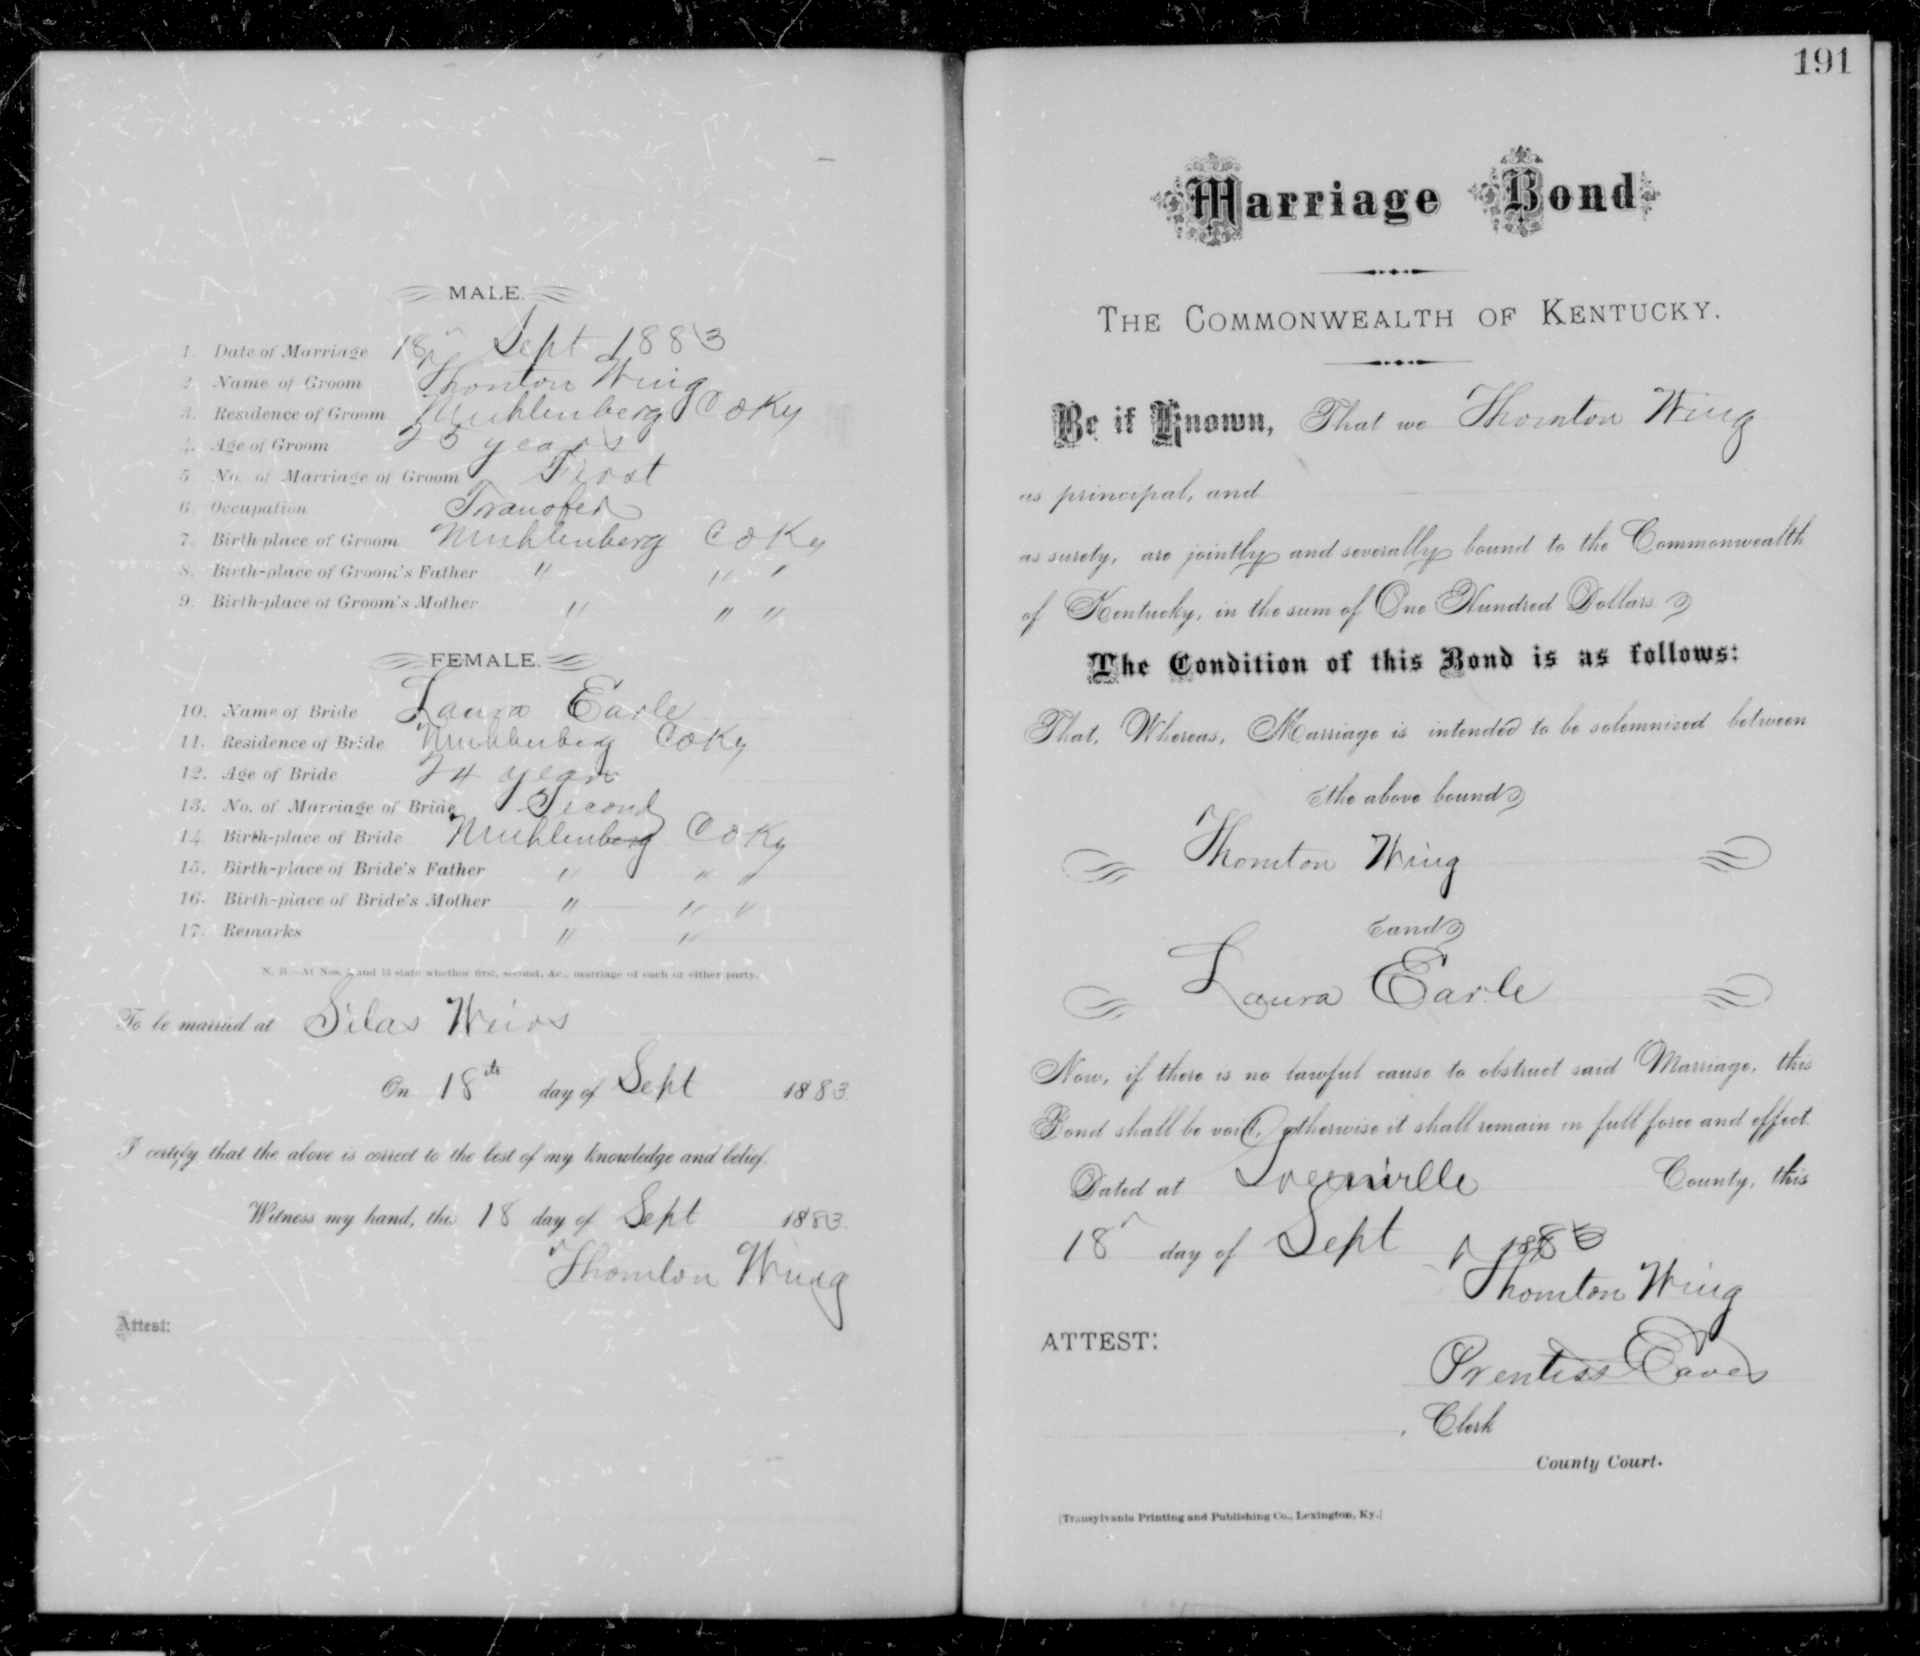 MALE.
1. Date of Marriage 18" Sept 1883
2. Name of Groom Thornton Wing
3. Residence of Groom Muhlenberg Co Ky
4. Age of Groom 25 years
5. No. of Marriage of Groom First
6. Occupation
7. Birth place of Groom Muhlenberg Co Ky
8. Birth-place of Groom's Father " " "
9. Birth-place of Groom's Mother " " "
FEMALE.
10. Name of Bride Laura Earle
11. Residence of Bride Muhlenberg Co Ky
12. Age of Bride 24 years
13. No. of Marriage of Bride Second
14. Birth-place of Bride Muhlenberg Co Ky
15. Birth-place of Bride's Father " " "
16. Birth-place of Bride's Mother " " "
17. Remarks " "
N. B.—At Nos. 5 and 13 state whether first, second, &c., marriage of each or either party.
To be married at Silas Weirs
On 18th day of Sept 1883.
I certify that the above is correct to the best of my knowledge and belief.
Witness my hand, this 18 day of Sept 1883.
Thornton Wing
Attest:
191
Marriage Bond
THE COMMONWEALTH OF KENTUCKY.
Be it Known, That we Thornton Wing
as principal, and
as surety, are jointly and severally bound to the Commonwealth
of Kentucky, in the sum of One Hundred Dollars.
The Condition of this Bond is as follows:
That, Whereas, Marriage is intended to be solemnized between
the above bound
Thornton Wing
and
Laura Earle
Now, if there is no lawful cause to obstruct said Marriage, this
Bond shall be void, otherwise it shall remain in full force and effect.
Dated at Greenville County, this
18" day of Sept 1883
Thornton Wing
ATTEST:
Prentiss Eaves
, Clerk
County Court.
[Transylvania Printing and Publishing Co., Lexington, Ky.]